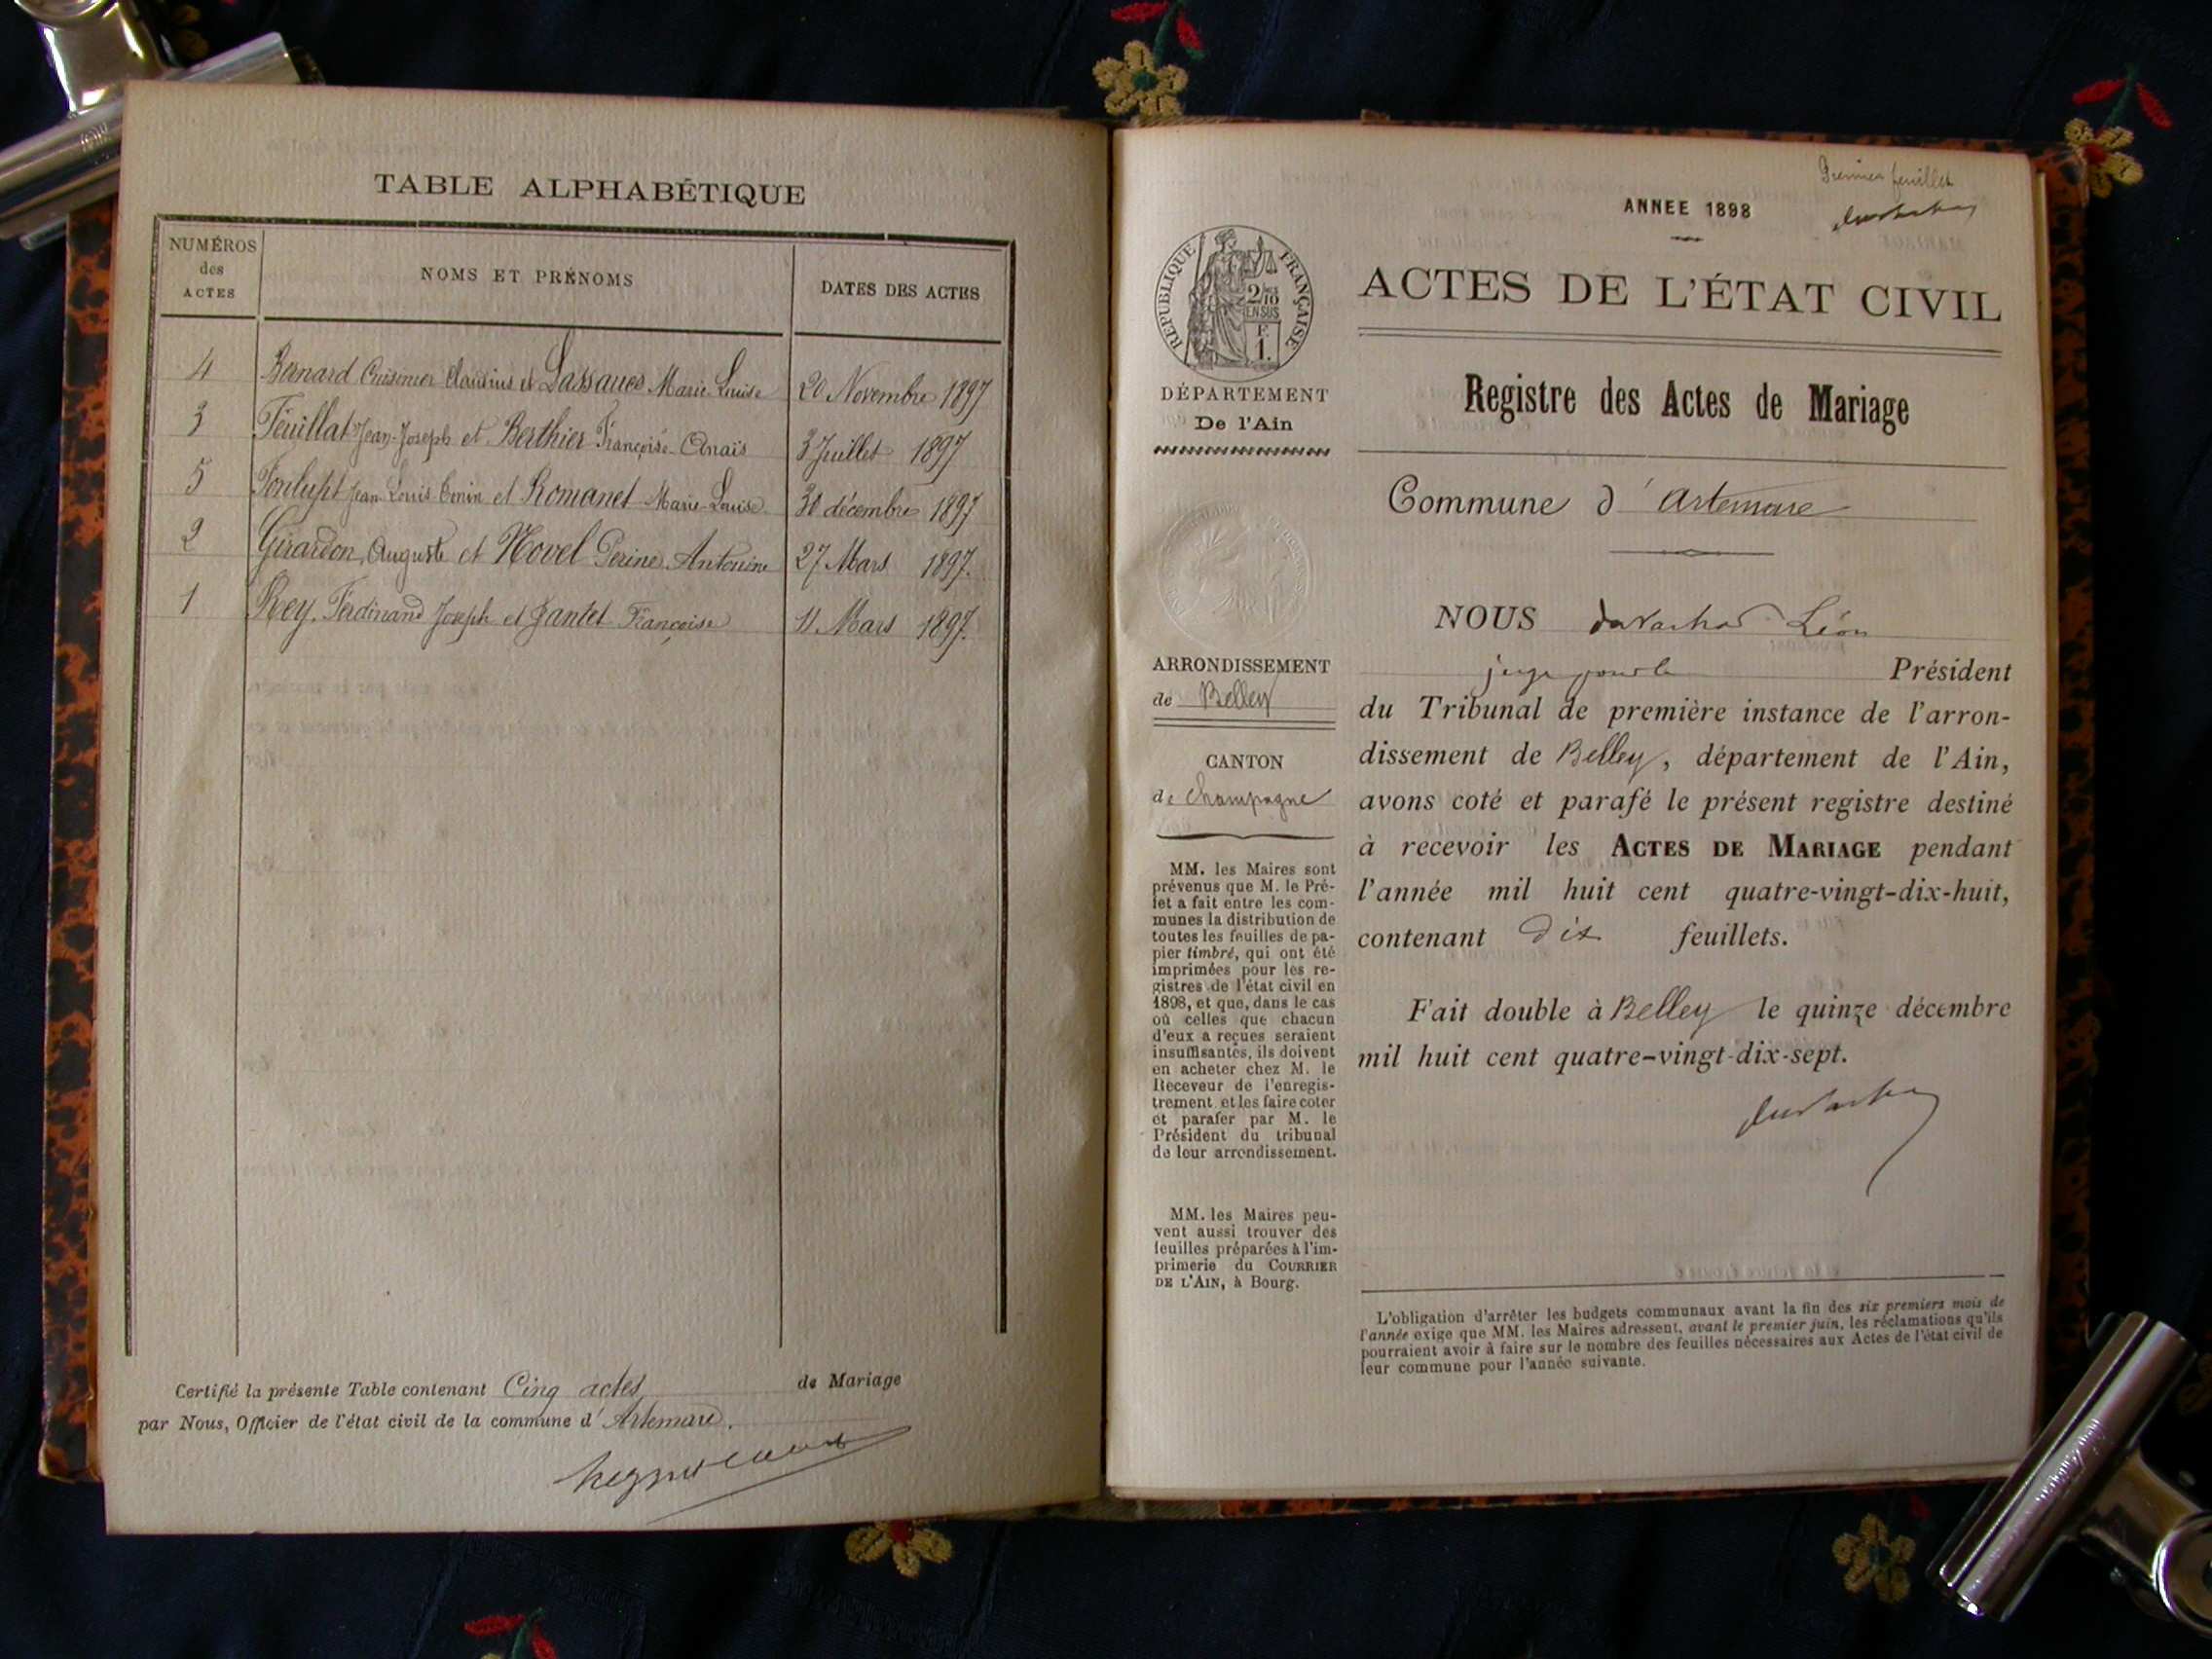 TABLE ALPHABÉTIQUE
NUMÉROS
des
ACTES
NOMS ET PRÉNOMS
DATES DES ACTES
4 Bernard Cuisinier Claudius et Lassaues Marie Louise 20 Novembre 1897
3 Feuillat Jean-Joseph et Berthier Françoise Anaïs 3 Juillet 1897
5 Fonlupt Jean Louis et Romanet Marie-Louise 30 décembre 1897
2 Girardon Auguste et Hovel Perine Antonine 27 Mars 1897.
1 Rey Ferdinand Joseph et Jantet Françoise 11 Mars 1897.
Certifié la présente Table contenant Cinq actes de Mariage
par Nous, Officier de l'état civil de la commune d'Artemare.
Premier feuillet
ANNEE 1898
RÉPUBLIQUE FRANÇAISE
2/10
EN SUS
F.
1.
ACTES DE L'ÉTAT CIVIL
DÉPARTEMENT
De l'Ain
Registre des Actes de Mariage
Commune d'Artemare
NOUS Léon
juge pour le Président
du Tribunal de première instance de l'arron-
dissement de Belley, département de l'Ain,
avons coté et parafé le présent registre destiné
à recevoir les ACTES DE MARIAGE pendant
l'année mil huit cent quatre-vingt-dix-huit,
contenant dix feuillets.
Fait double à Belley le quinze décembre
mil huit cent quatre-vingt-dix-sept.
ARRONDISSEMENT
de Belley
CANTON
de Champagne
MM. les Maires sont
prévenus que M. le Pré-
fet a fait entre les com-
munes la distribution de
toutes les feuilles de pa-
pier timbré, qui ont été
imprimées pour les re-
gistres de l'état civil en
1898, et que, dans le cas
où celles que chacun
d'eux a reçues seraient
insuffisantes, ils doivent
en acheter chez M. le
Receveur de l'enregis-
trement et les faire coter
et parafer par M. le
Président du tribunal
de leur arrondissement.
MM. les Maires peu-
vent aussi trouver des
feuilles préparées à l'im-
primerie du COURRIER
DE L'AIN, à Bourg.
L'obligation d'arrêter les budgets communaux avant la fin des six premiers mois de
l'année exige que MM. les Maires adressent, avant le premier juin, les réclamations qu'ils
pourraient avoir à faire sur le nombre des feuilles nécessaires aux Actes de l'état civil de
leur commune pour l'année suivante.